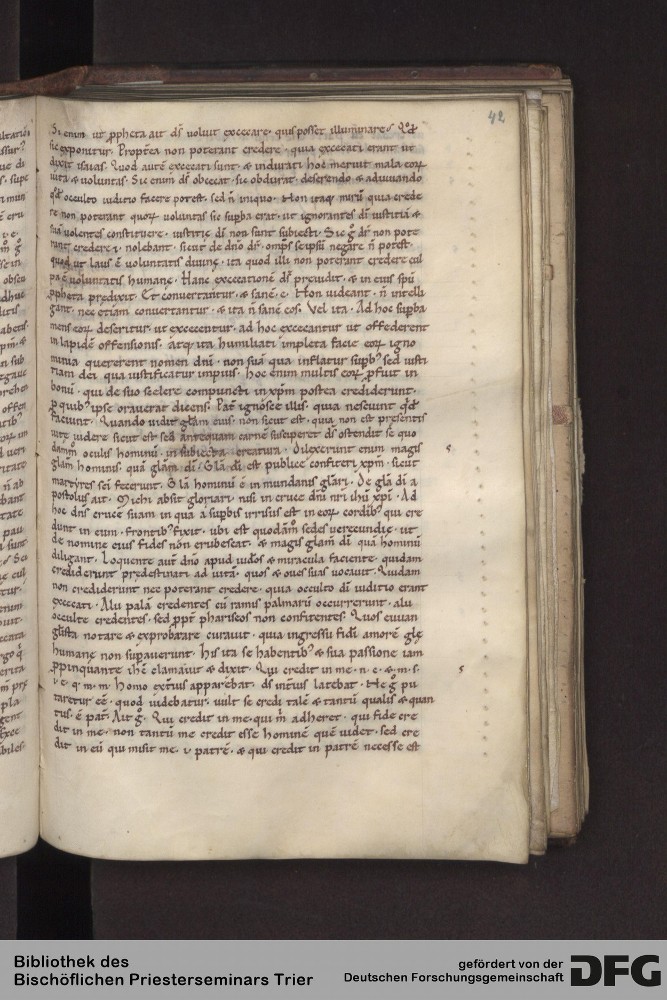 42
Si enim ut ꝓpheta ait ds̄ voluit excecare. quis posset illuminare? Qd̄
sic exponitur. Propt̄ea non poterant credere. quia excecati erant ut
dixit isaias. Quod autē excecati sunt. & indurati hoc meruit mala eorꝝ
uita & voluntas. Sic enim ds̄ obcecat. sic obdurat. deserendo & n̄ adiuuando
qd̄ occulto iuditio facere potest. sed n̄ iniquo. Non itaq; mirū quia crede
re non poterant quorꝝ voluntas sic supba erat. ut ignorantes dī iustitiā &
suā volentes constituere. iustitię dī non sunt subiecti. Sic g̊ dr̄ non pote
rant credere .i. nolebant. sicut de dn̄o dr̄. omps̄ seipsū negare n̄ potest.
quod ut laus ē voluntatis diuinę. ita quod illi non poterant credere cul
pa ē voluntatis humanę. Hanc excecationē ds̄ preuidit. & in eius spū
ꝓpheta predixit. Et conuertantur. & sanē. e. Non videant. n̄ intelli
gant. nec etiam conuertantur. & ita n̄ sanē eos. Vel ita. Ad hoc supba
mens eorꝝ deseritur. ut excecentur. ad hoc excecantur ut offederent
in lapidē offensionis. Atq; ita humiliati impleta facie eorꝝ igno
minia quererent nomen dn̄i. non suā qua inflatur supb; sed iusti
tiam dei qua iustificatur impius. Hoc enim multis eorꝝ ꝓfuit in
bonū. qui de suo scelere compuncti in xp̄m postea crediderunt.
ꝓ quib; ipse orauerat dicens. Pat̄ ignosce illis. quia nesciunt qd̄
faciunt. Quando vidit glām eius. non sicut est. quia non est presentis
uitę videre sicut est sed antequam carnē susciperet ds̄ ostendit se quo
dam̄ oculis hominū. in subiecta creatura. Dilexerunt enim magis
glām hominū. quā glām dī. Glā dī est publice confiteri xp̄m. sicut
martyres scī fecerunt. Glā hominū ē in mundanis glāri. De glā dī a
postolus ait. Michi absit gloriari. nisi in cruce dn̄i nr̄i ihū xp̄i. Ad
hoc dn̄s crucē suam in qua a supbis irrisus est in eorꝝ cordib; qui cre
dunt in eum. frontib; fixit. ubi est quodāmō sedes verecundię. ut
de nomine eius fides non erubescat. & magis glām dī quā hominū
diligant. Loquente aut̄ dn̄o apud iudeos & miracula faciente. quidam
crediderunt predestinati ad uitā. quos & oues suas vocauit. Quidam
non crediderunt nec poterant credere. quia occulto dī iuditio erant
excecati. Alii palā credentes cū ramis palmarū occurrerunt. alii
occulte credentes. sed ꝓpt̄ phariseos non confitentes. Quos euuan
glīsta notare & exprobrare curauit. quia ingressū fidī amorē glę
humane non supauerunt. His ita se habentib; & sua passione iam
ꝓpinquante ihē̄ clamauit & dixit. Qui credit in me. n. c. & m. s.
v e. q. m. m. Homo ext̄ius apparebat. ds̄ int̄ius latebat. Ne g̊ pu
taretur eē. quod videbatur. vult se credi talē & tantū qualis & quan
tus. ē pat̄. Ait g̊. Qui credit in me. qui m̄ adheret. qui fide cre
dit in me. non tantū me credit esse hominē quē videt. sed cre
dit in eū qui misit me. .i. patrē. & qui credit in patrē necesse est
Bibliothek des
Bischöflichen Priesterseminars Trier
gefördert von der
Deutschen Forschungsgemeinschaft
DFG